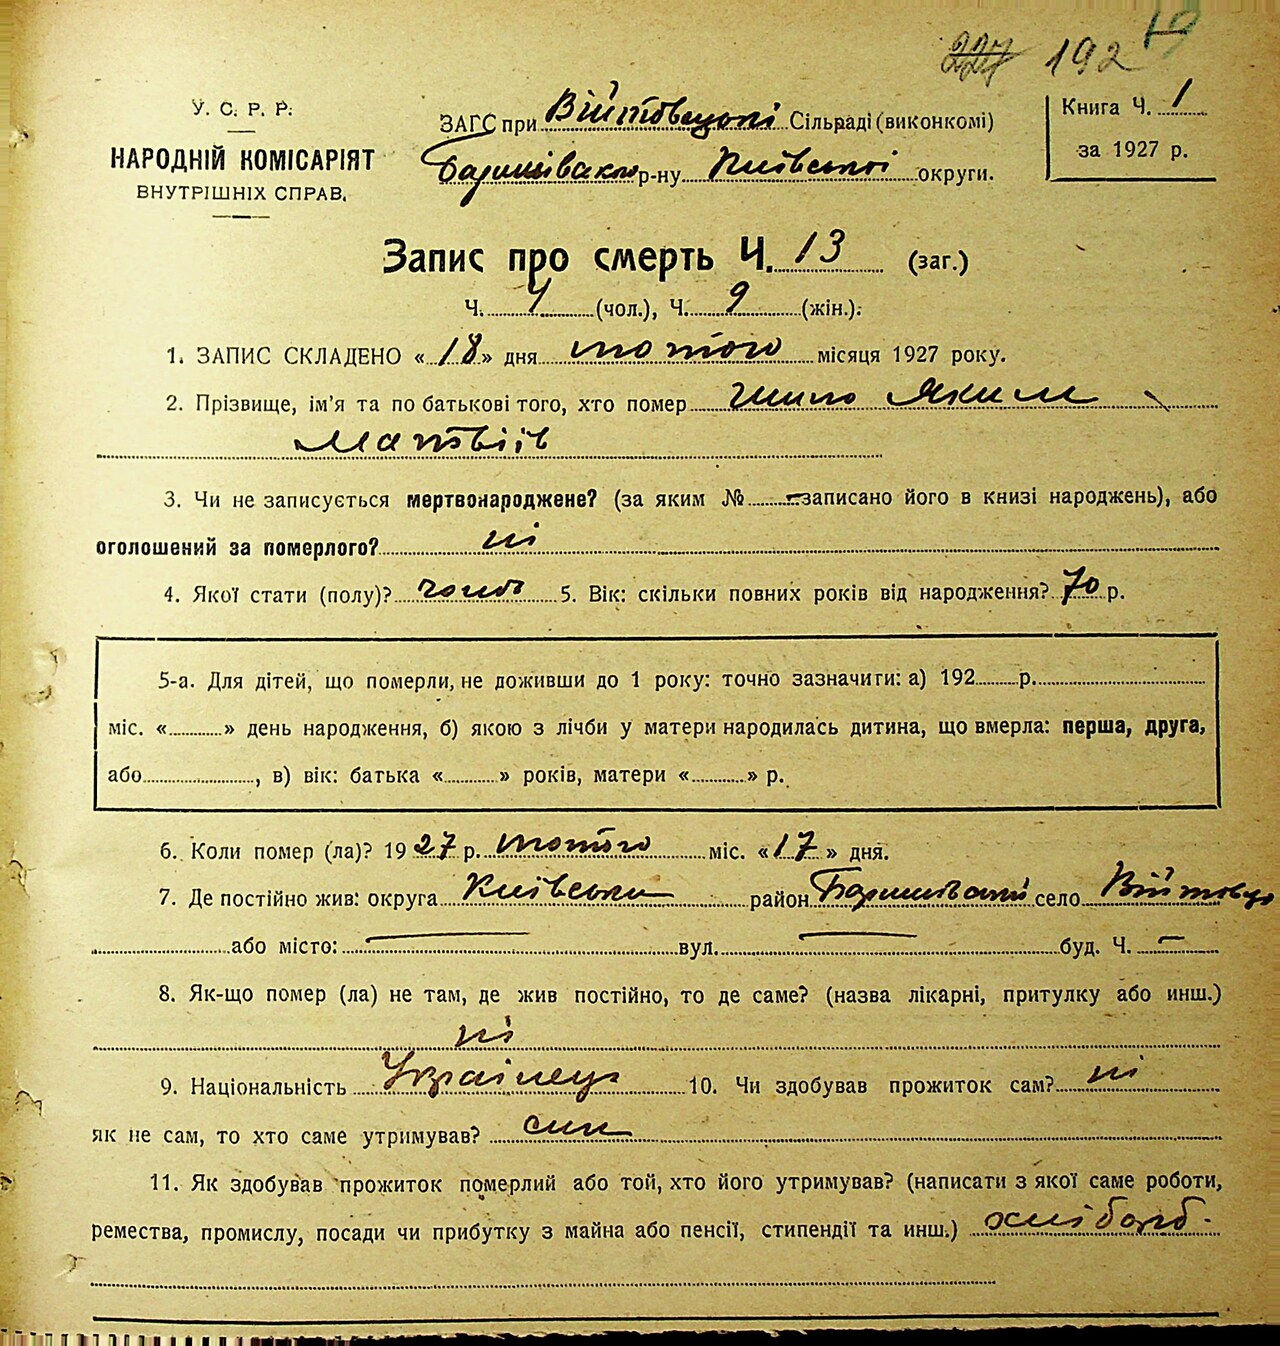 227 192 19
У. С. Р. Р.
НАРОДНІЙ КОМІСАРІЯТ
ВНУТРІШНІХ СПРАВ.
ЗАГС при Війтовецькі Сільраді (виконкомі)
Баришівсько р-ну Київської округи.
Книга Ч. 1
за 1927 р.
Запис про смерть Ч. 13 (заг.)
Ч. 4 (чол.), Ч. 9 (жін.).
1. ЗАПИС СКЛАДЕНО «18» дня лютого місяця 1927 року.
2. Прізвище, ім'я та по батькові того, хто помер Шило Яким
Матвіїв
3. Чи не записується мертвонароджене? (за яким № – записано його в книзі народжень), або
оголошений за померлого? ні
4. Якої стати (полу)? чолов 5. Вік: скільки повних років від народження? 70 р.
5-а. Для дітей, що померли, не доживши до 1 року: точно зазначити: а) 192 р.
міс. « » день народження, б) якою з лічби у матери народилась дитина, що вмерла: перша, друга,
або , в) вік: батька « » років, матери « » р.
6. Коли помер (ла)? 1927 р. лютого міс. «17» дня.
7. Де постійно жив: округа Київська район Баришівський село Війтовці
або місто: — вул. — буд. Ч. –
8. Як-що помер (ла) не там, де жив постійно, то де саме? (назва лікарні, притулку або инш.)
ні
9. Національність Українець 10. Чи здобував прожиток сам? ні
як не сам, то хто саме утримував? син
11. Як здобував прожиток померлий або той, хто його утримував? (написати з якої саме роботи,
ремества, промислу, посади чи прибутку з майна або пенсії, стипендії та инш.) хлібороб.